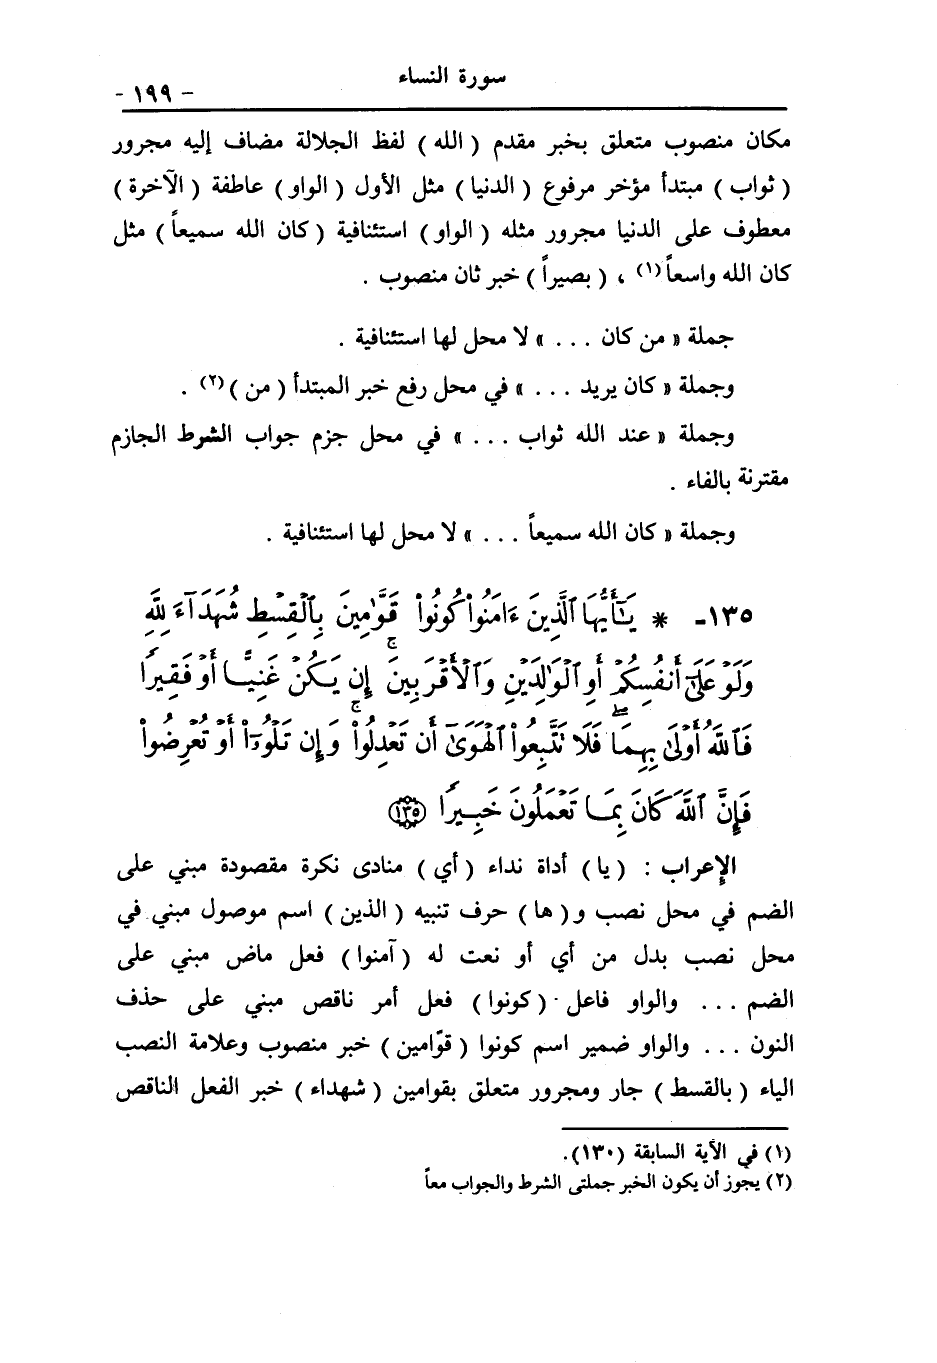 سورة النساء
- ١٩٩ -
مكان منصوب متعلق بخبر مقدم ( الله ) لفظ الجلالة مضاف إليه مجرور
( ثواب ) مبتدأ مؤخر مرفوع ( الدنيا ) مثل الأول ( الواو ) عاطفة ( الآخرة )
معطوف على الدنيا مجرور مثله ( الواو ) استئنافية ( كان الله سميعاً ) مثل
كان الله واسعاً (١) ، ( بصيراً ) خبر ثان منصوب .
جملة « من كان . . . » لا محل لها استئنافية .
وجملة « كان يريد . . . » في محل رفع خبر المبتدأ ( من ) (٢) .
وجملة « عند الله ثواب . . . » في محل جزم جواب الشرط الجازم
مقترنة بالفاء .
وجملة « كان الله سميعاً . . . » لا محل لها استئنافية .
١٣٥- * يَـٰٓأَيُّهَا ٱلَّذِينَ ءَامَنُوا۟ كُونُوا۟ قَوَّٰمِينَ بِٱلْقِسْطِ شُهَدَآءَ لِلَّهِ
وَلَوْ عَلَىٰٓ أَنفُسِكُمْ أَوِ ٱلْوَٰلِدَيْنِ وَٱلْأَقْرَبِينَ ۚ إِن يَكُنْ غَنِيًّا أَوْ فَقِيرًا
فَٱللَّهُ أَوْلَىٰ بِهِمَا ۖ فَلَا تَتَّبِعُوا۟ ٱلْهَوَىٰٓ أَن تَعْدِلُوا۟ ۚ وَإِن تَلْوُۥٓا۟ أَوْ تُعْرِضُوا۟
فَإِنَّ ٱللَّهَ كَانَ بِمَا تَعْمَلُونَ خَبِيرًا ١٣٥
الإعراب : ( يا ) أداة نداء ( أي ) منادى نكرة مقصودة مبني على
الضم في محل نصب و( ها ) حرف تنبيه ( الذين ) اسم موصول مبني في
محل نصب بدل من أي أو نعت له ( آمنوا ) فعل ماض مبني على
الضم . . . والواو فاعل ( كونوا ) فعل أمر ناقص مبني على حذف
النون . . . والواو ضمير اسم كونوا ( قوّامين ) خبر منصوب وعلامة النصب
الياء ( بالقسط ) جار ومجرور متعلق بقوامين ( شهداء ) خبر الفعل الناقص
(١) في الآية السابقة (١٣٠).
(٢) يجوز أن يكون الخبر جملتي الشرط والجواب معاً